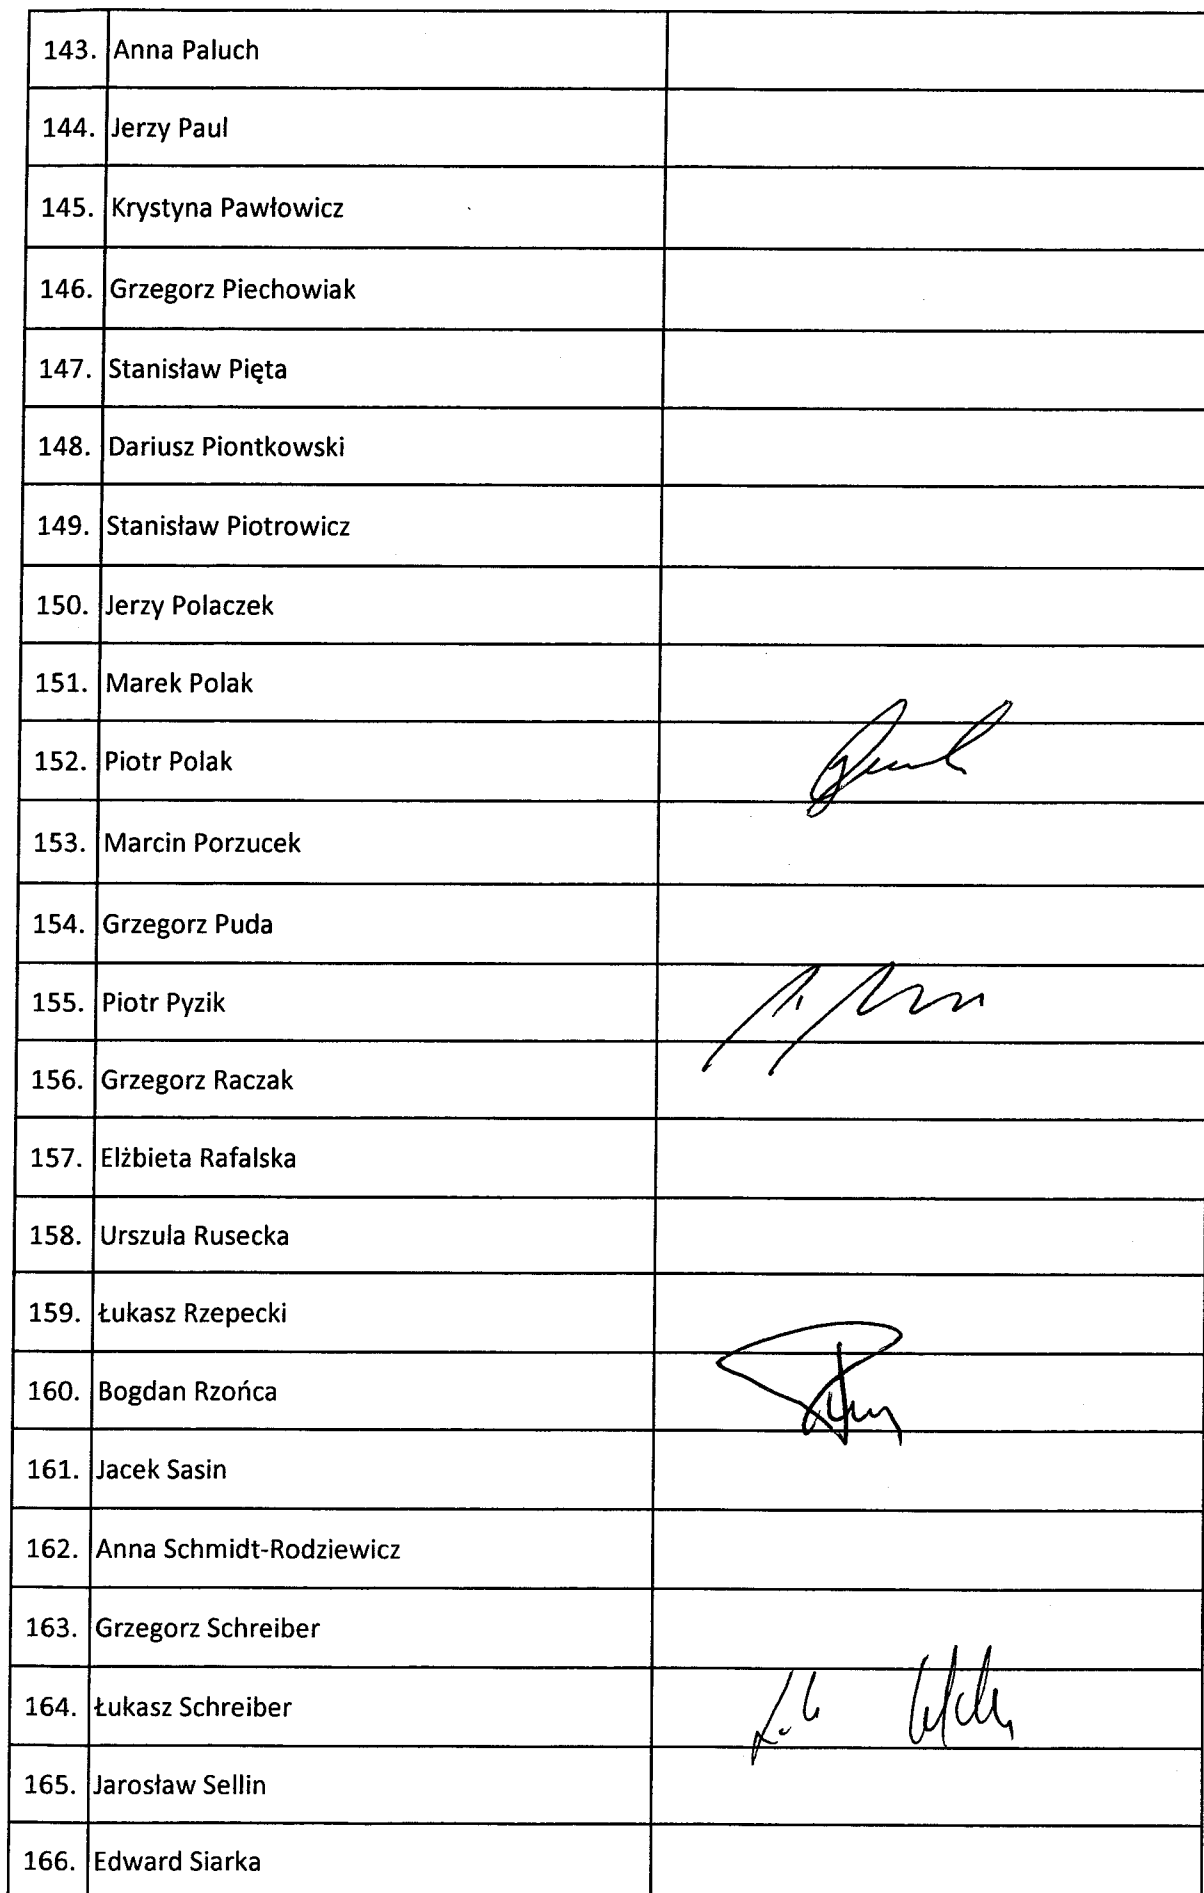 143. Anna Paluch
144. Jerzy Paul
145. Krystyna Pawłowicz
146. Grzegorz Piechowiak
147. Stanisław Pięta
148. Dariusz Piontkowski
149. Stanisław Piotrowicz
150. Jerzy Polaczek
151. Marek Polak
152. Piotr Polak
153. Marcin Porzucek
154. Grzegorz Puda
155. Piotr Pyzik
156. Grzegorz Raczak
157. Elżbieta Rafalska
158. Urszula Rusecka
159. Łukasz Rzepecki
160. Bogdan Rzońca
161. Jacek Sasin
162. Anna Schmidt-Rodziewicz
163. Grzegorz Schreiber
164. Łukasz Schreiber
165. Jarosław Sellin
166. Edward Siarka